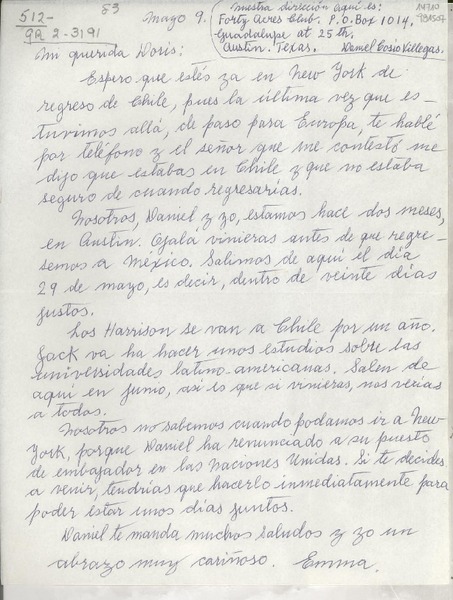 512-
GR 2-3191
83
Mayo 9.
Nuestra dirección aquí es:
Forty Acres Club. P.O. Box 1014,
Guadalupe at 25 th.
Austin. Texas. Daniel Cosío Villegas.
Mi querida Doris:
Espero que estés ya en New York de
regreso de Chile, pues la última vez que es-
tuvimos allá, de paso para Europa, te hablé
por teléfono y el señor que me contestó me
dijo que estabas en Chile y que no estaba
seguro de cuando regresarías.
Nosotros, Daniel y yo, estamos hace dos meses,
en Austin. Ojala vinieras antes de que regre-
semos a México. Salimos de aquí el día
29 de mayo, es decir, dentro de veinte días
justos.
Los Harrison se van a Chile por un año.
Jack va ha hacer unos estudios sobre las
universidades latino-americanas. Salen de
aquí en junio, así es que si vinieras, nos verías
a todos.
Nosotros no sabemos cuando podamos ir a New
York, porque Daniel ha renunciado a su puesto
de embajador en las Naciones Unidas. Si te decides
a venir, tendrías que hacerlo inmediatamente para
poder estar unos días juntos.
Daniel te manda muchos saludos y yo un
abrazo muy cariñoso. Emma.